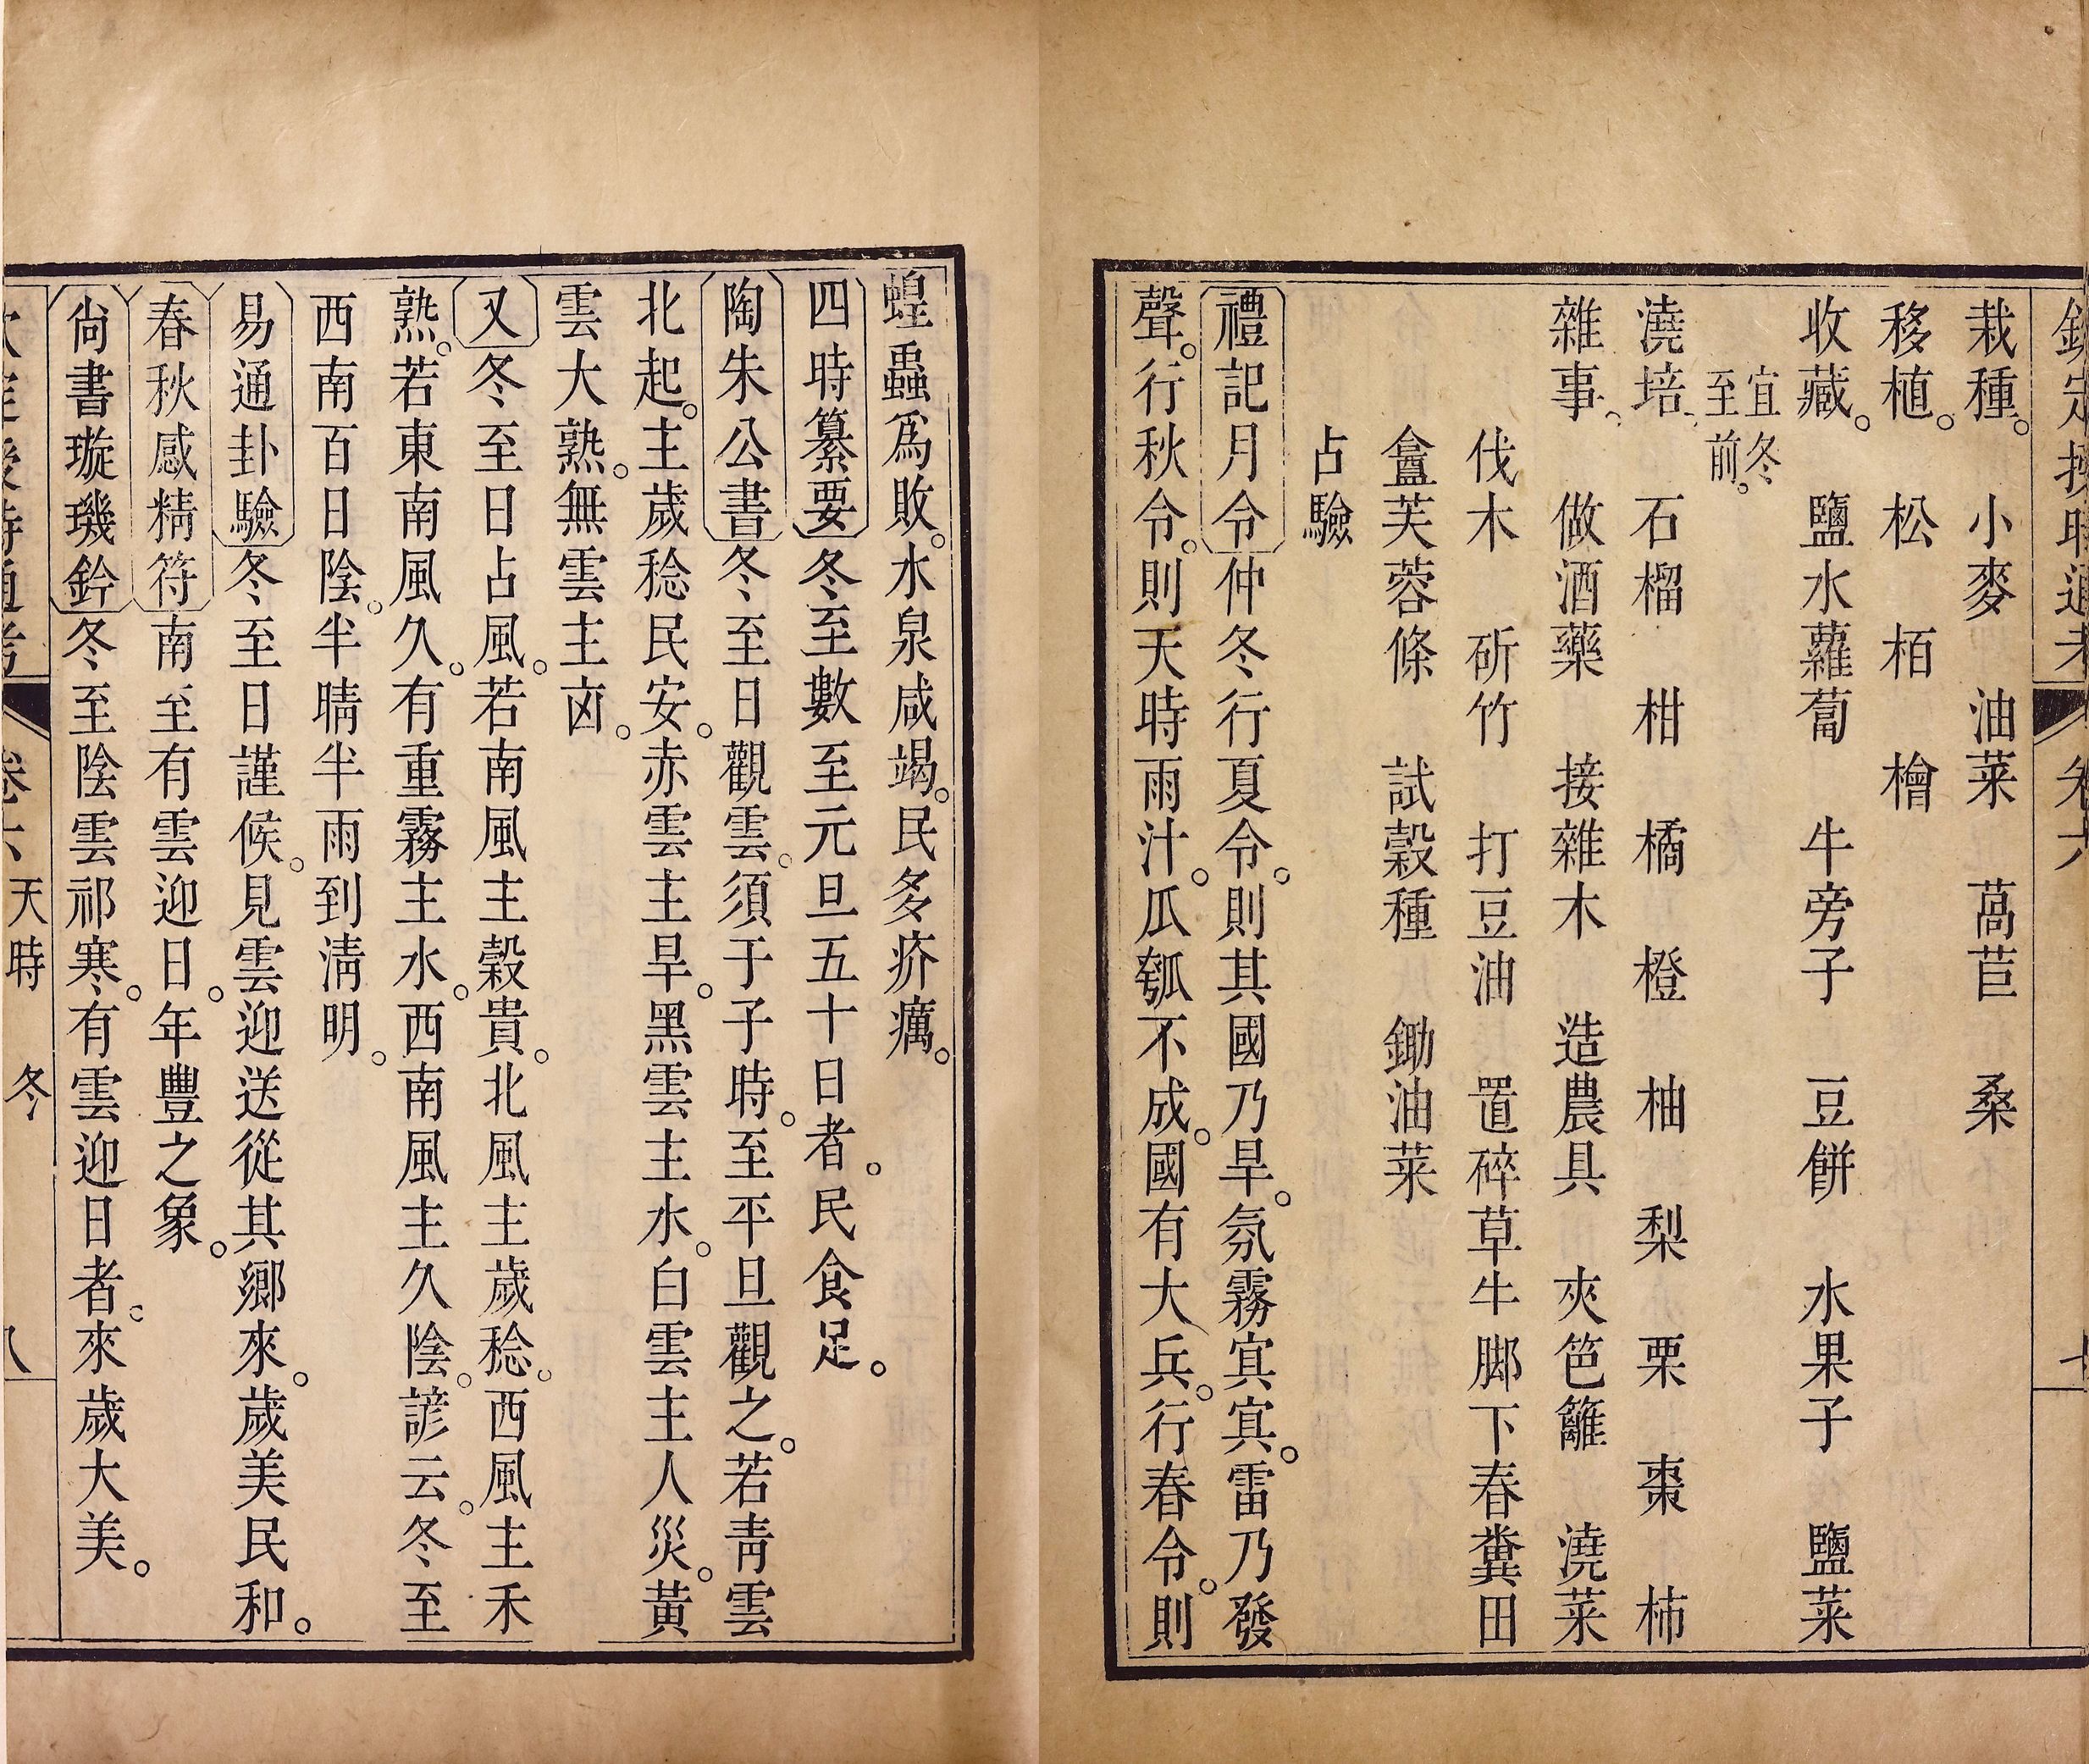 欽定授時通考 卷六
栽種。 小麥 油菜 萵苣 桑
移植。 松 栢 檜
收藏。 鹽水蘿蔔 牛旁子 豆餅 水果子 鹽菜
宜冬
至前。
澆培。 石榴 柑 橘 橙 柚 梨 栗 棗 柿
雜事。 做酒藥 接雜木 造農具 夾笆籬 澆菜
伐木 斫竹 打豆油 置碎草牛脚下舂糞田
盒芙蓉條 試穀種 鋤油菜
占驗
禮記月令仲冬行夏令。則其國乃旱。氛霧㝠㝠。雷乃發
聲。行秋令。則天時雨汁。瓜瓠不成。國有大兵。行春令。則
蝗蟲爲敗。水泉咸竭。民多疥癘。
四時纂要冬至數至元旦五十日者。民食足。
陶朱公書冬至日觀雲。須于子時。至平旦觀之。若青雲
北起。主歲稔民安。赤雲主旱。黑雲主水。白雲主人災。黃
雲大熟。無雲主㐫。
又冬至日占風。若南風主穀貴。北風主歲稔。西風主禾
熟。若東南風久。有重霧主水。西南風主久陰。諺云。冬至
西南百日陰。半晴半雨到淸明。
易通卦驗冬至日謹候。見雲迎送從其鄉來。歲美民和。
春秋感精符南至有雲迎日。年豐之象。
尙書璇璣鈐冬至陰雲祁寒。有雲迎日者。來歲大美。
欽定授時通考 卷六 天時 冬 八